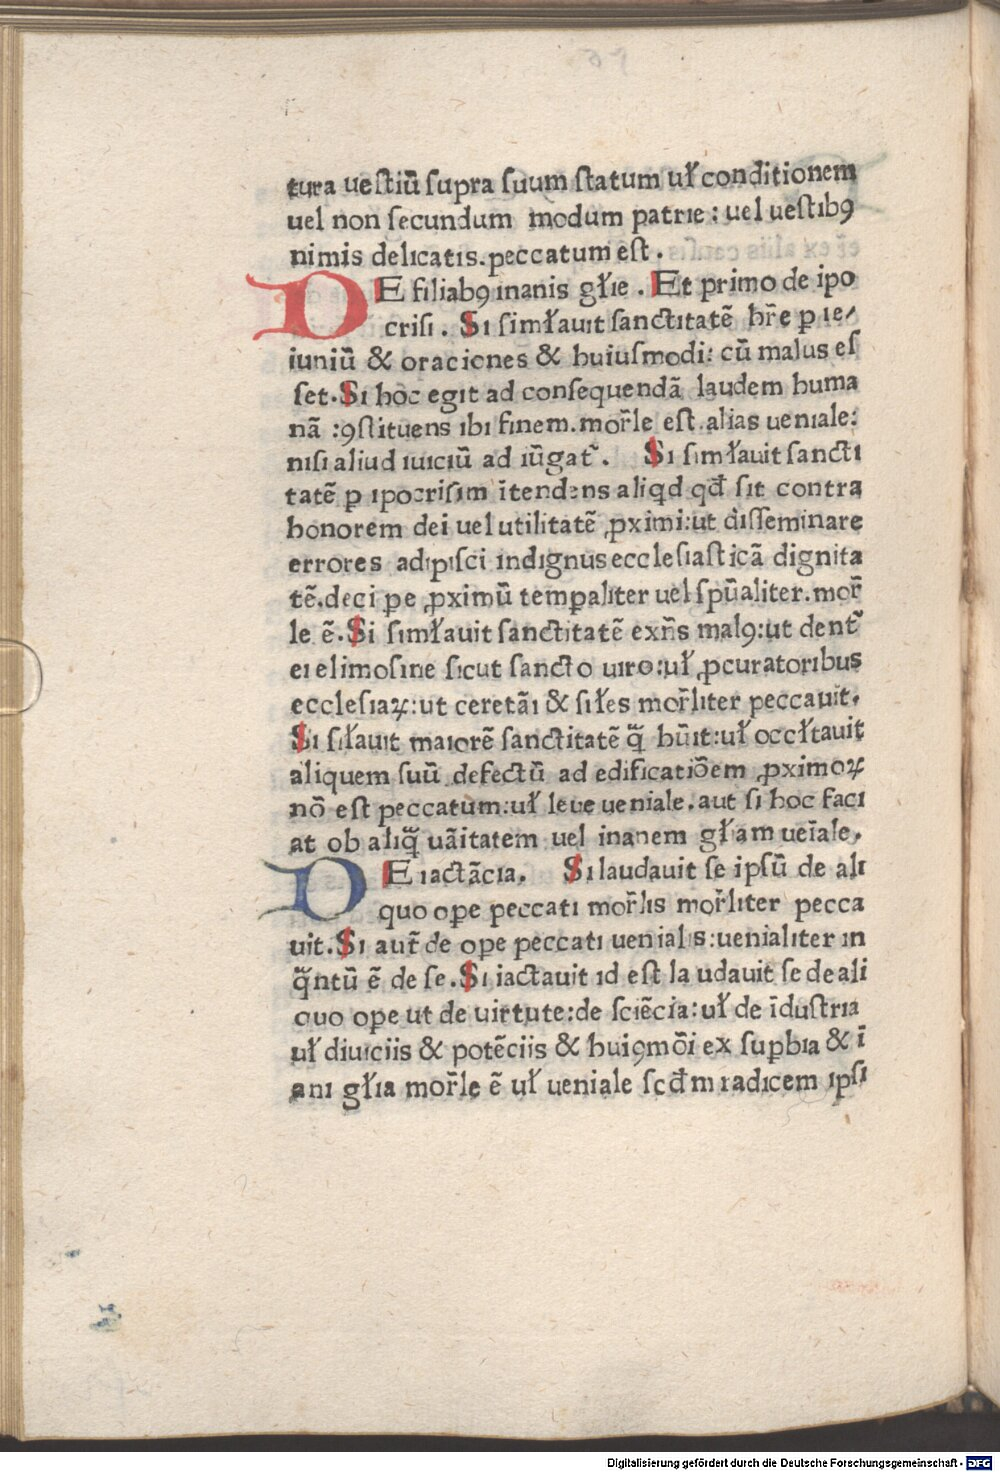 tura uestiū supra suum statum uł conditionem
uel non secundum modum patrie : uel uestibꝰ
nimis delicatis. peccatum est .
DE filiabꝰ inanis głie . Et primo de ipo
crisi . Si simłauit sanctitatē hr̄e p ie/
iuniū & oraciones & huiusmodi: cū malus es
set. Si hoc egit ad consequendā laudem huma
nā :ꝯstituens ibi finem. mor̄le est. alias ueniale:
nisi aliud iuiciū ad iūgat᷑. Si simłauit sancti
tatē p ipocrisim ītendens aliqd qđ sit contra
honorem dei uel utilitatē ꝓximi: ut disseminare
errores adipisci indignus ecclesiasticā dignita
tē. deci pe ꝓximū tempaliter uel spūaliter. mor̄
le ē. Si simłauit sanctitatē exn̄s malꝰ: ut dent᷑
ei elimosine sicut sancto uiro: uł ꝓcuratoribus
ecclesiaꝝ: ut ceretāi & siłes mor̄liter peccauit.
Si siłauit maiorē sanctitatē q̄̈ hūit: uł occłtauit
aliquem suū defectū ad edificatiōem ꝓximoꝝ
nō est peccatum: uł leue ueniale. aut si hoc faci
at ob aliq̄̈ uāitatem uel inanem głam ueīale.
DE iactācia. Si laudauit se ipsū de ali
quo ope peccati mor̄lis mor̄liter pecca
uit. Si aut̄ de ope peccati uenialis: uenialiter in
q̄̈ntū ē de se. Si iactauit id est laudauit se de ali
quo ope ut de uirtute: de sciēcia: uł de īdustria
uł diuiciis & potēciis & huiꝰmōi ex supbia & ī
ani głia mor̄le ē uł ueniale scđm radicem ipsi
Digitalisierung gefördert durch die Deutsche Forschungsgemeinschaft - DFG